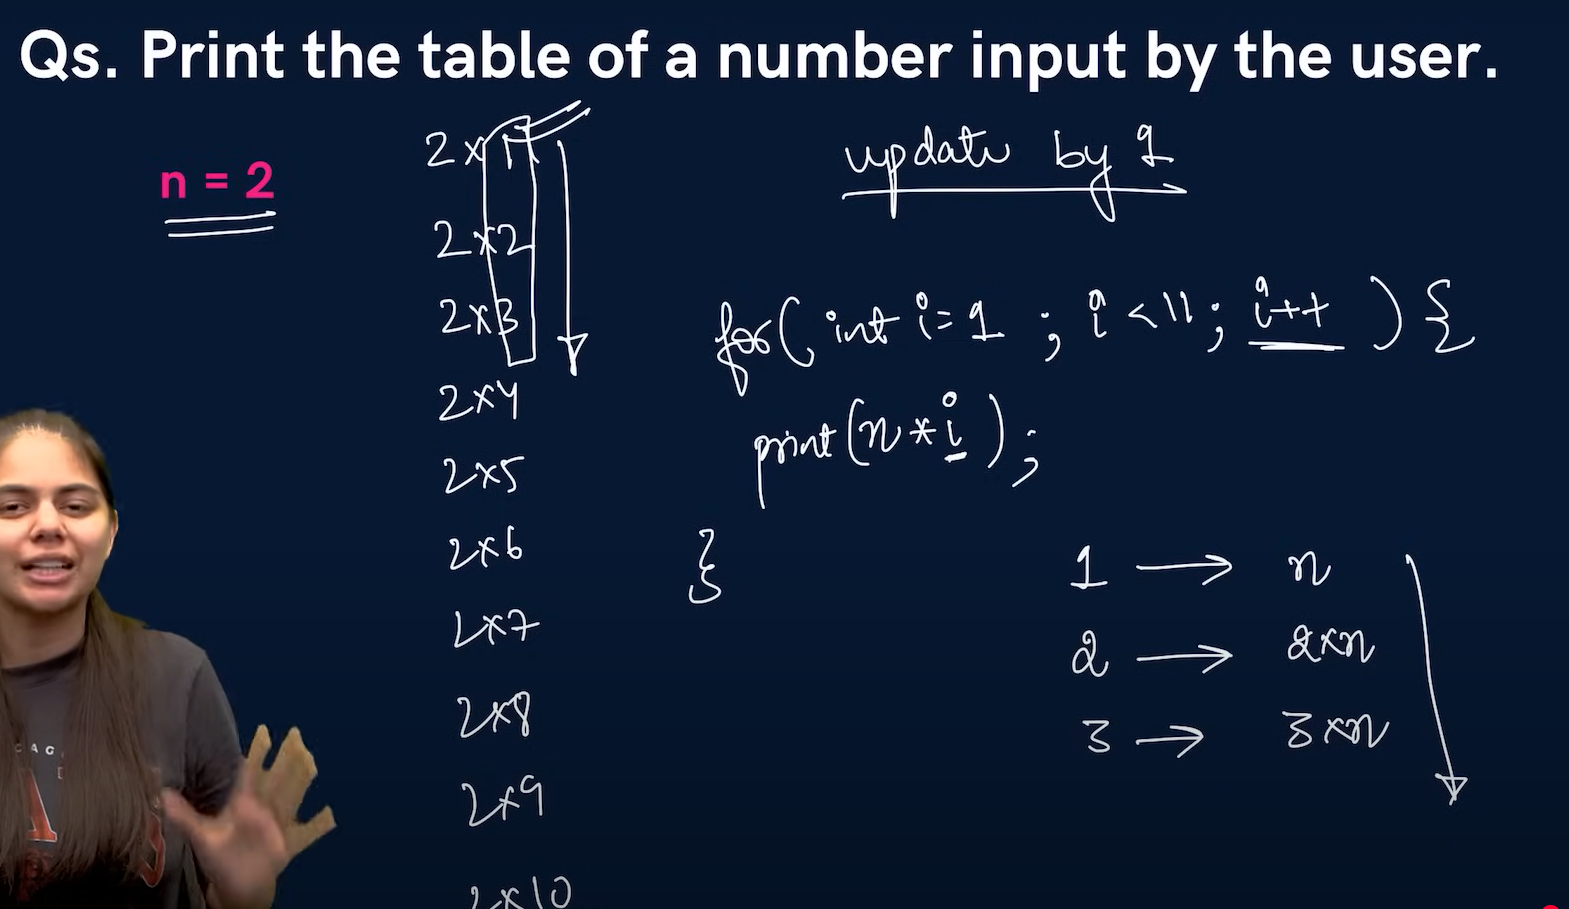 Qs. Print the table of a number input by the user.
n = 2
2 x 1
2 x 2
2 x 3
2 x 4
2 x 5
2 x 6
2 x 7
2 x 8
2 x 9
2 x 10
update by 1
for( int i = 1 ; i < 11 ; i++ ) {
print(n * i);
}
1 → n
2 → 2xn
3 → 3xn